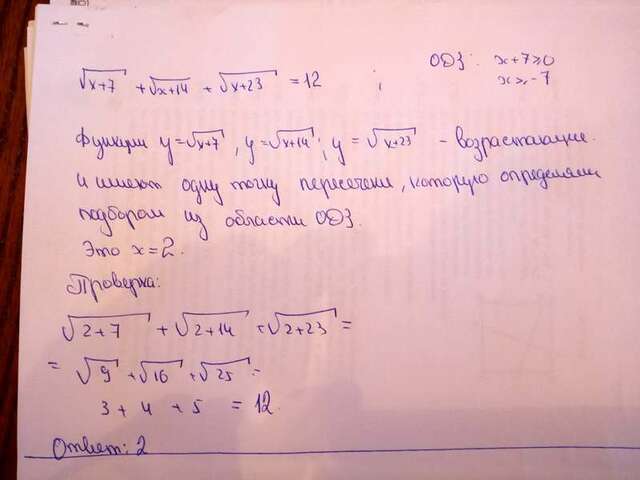 √x+7 + √x+14 + √x+23 = 12 ; ОДЗ: x+7≥0
x≥-7
функции y=√x+7; y=√x+14; y=√x+23 - возрастающие
и имеют одну точку пересечения, которую определяем
подбором из области ОДЗ.
Это x=2.
Проверка:
√2+7 + √2+14 + √2+23 =
= √9 + √16 + √25 =
3 + 4 + 5 = 12.
Ответ: 2